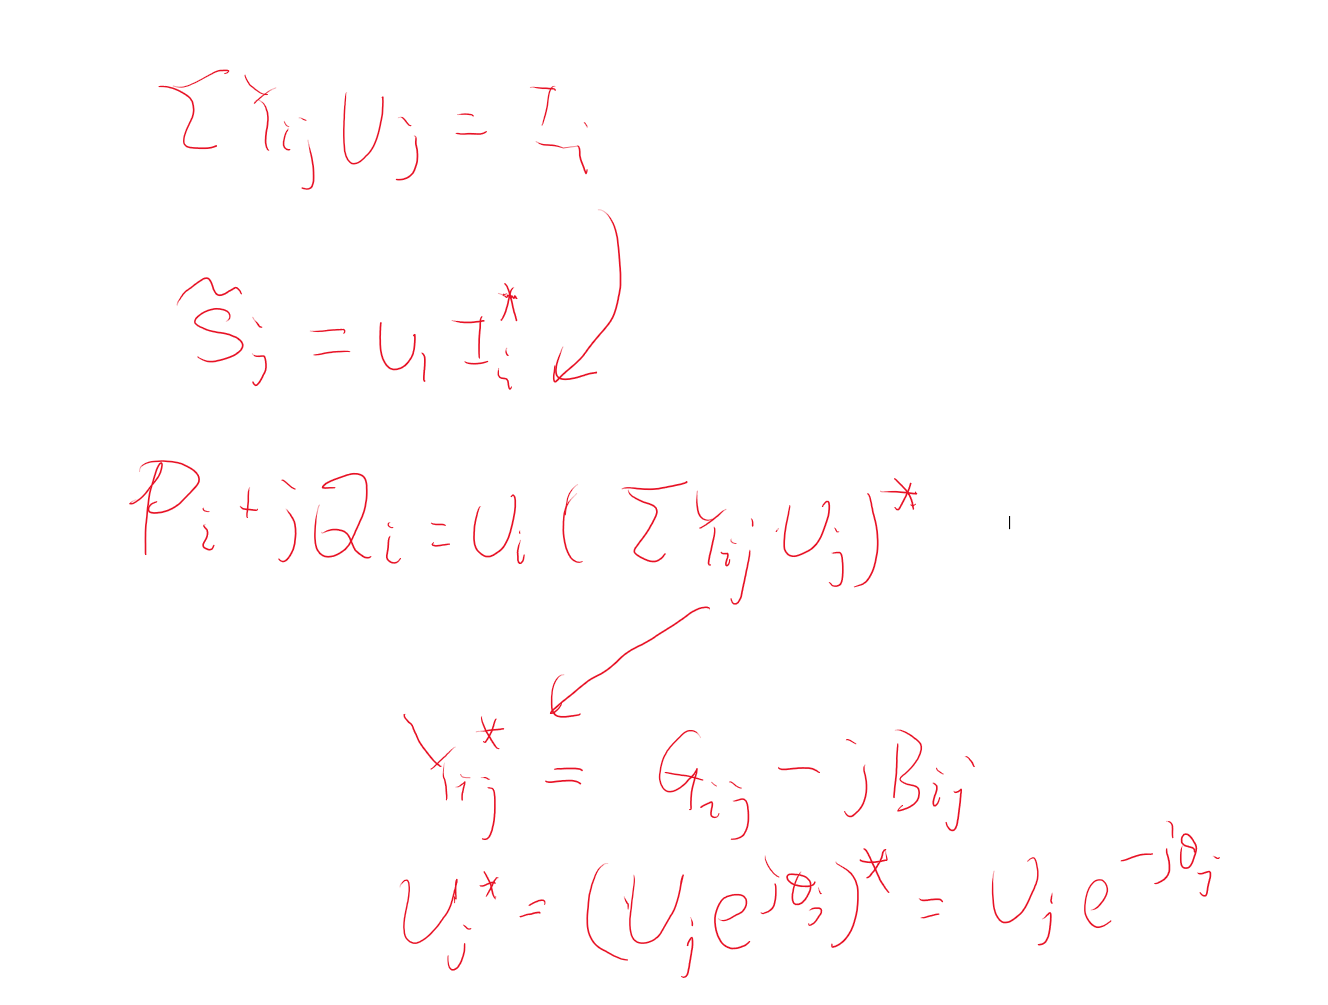 Σ Y_ij U_j = I_i
S̃_j = U_1 I_i^*
P_i + jQ_i = U_i (Σ Y_ij U_j)^*
Y_ij^* = G_ij - jB_ij
U_j^* = (U_j e^{jθ_j})^* = U_j e^{-jθ_j}